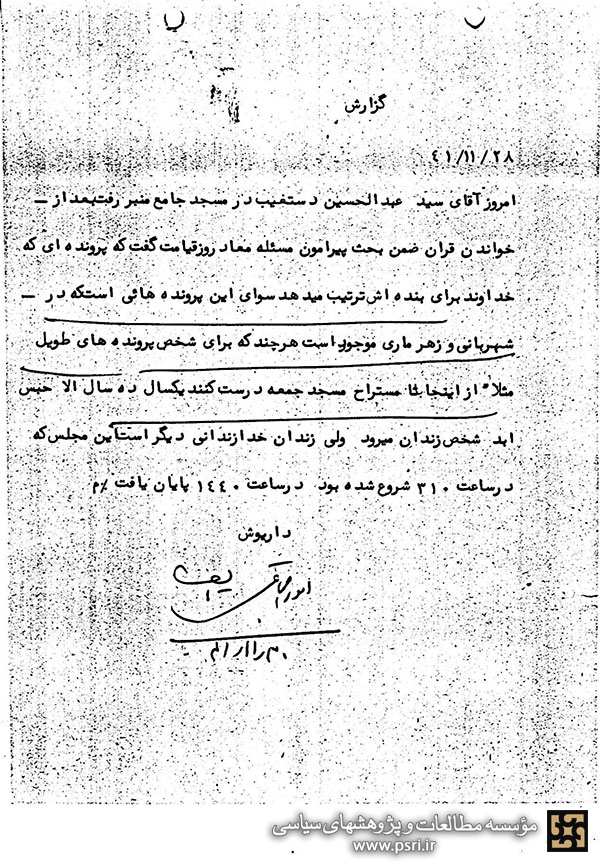 گزارش
٤١/١١/٢٨
امروز آقای سید عبدالحسین دستغیب در مسجد جامع منبر رفت بعد از –
خواندن قران ضمن بحث پیرامون مسئله معاد روز قیامت گفت که پرونده ای که
خداوند برای بنده اش ترتیب میدهد سوای این پرونده هائی است که در –
شهربانی و زهرماری موجود است هرچند که برای شخص پرونده های طویل
مثلا" از اینجا تا مستراح مسجد جمعه درست کنند یکسال ده سال الا حبس
ابد شخص زندان میرود ولی زندان خدا زندانی دیگر است این مجلس که
در ساعت ٣١٠ شروع شده بود در ساعت ١٤٤٠ پایان یافت ٪م
داریوش
مؤسسه مطالعات و پژوهشهای سیاسی
www.psri.ir